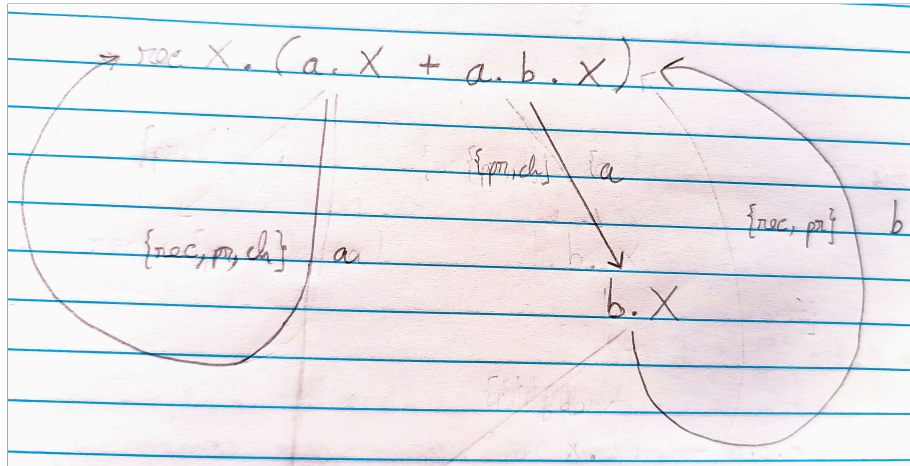 rec X. (a. X + a. b. X)
{pr, ch} a
{rec, pr} b
{rec, pr, ch} a
b. X